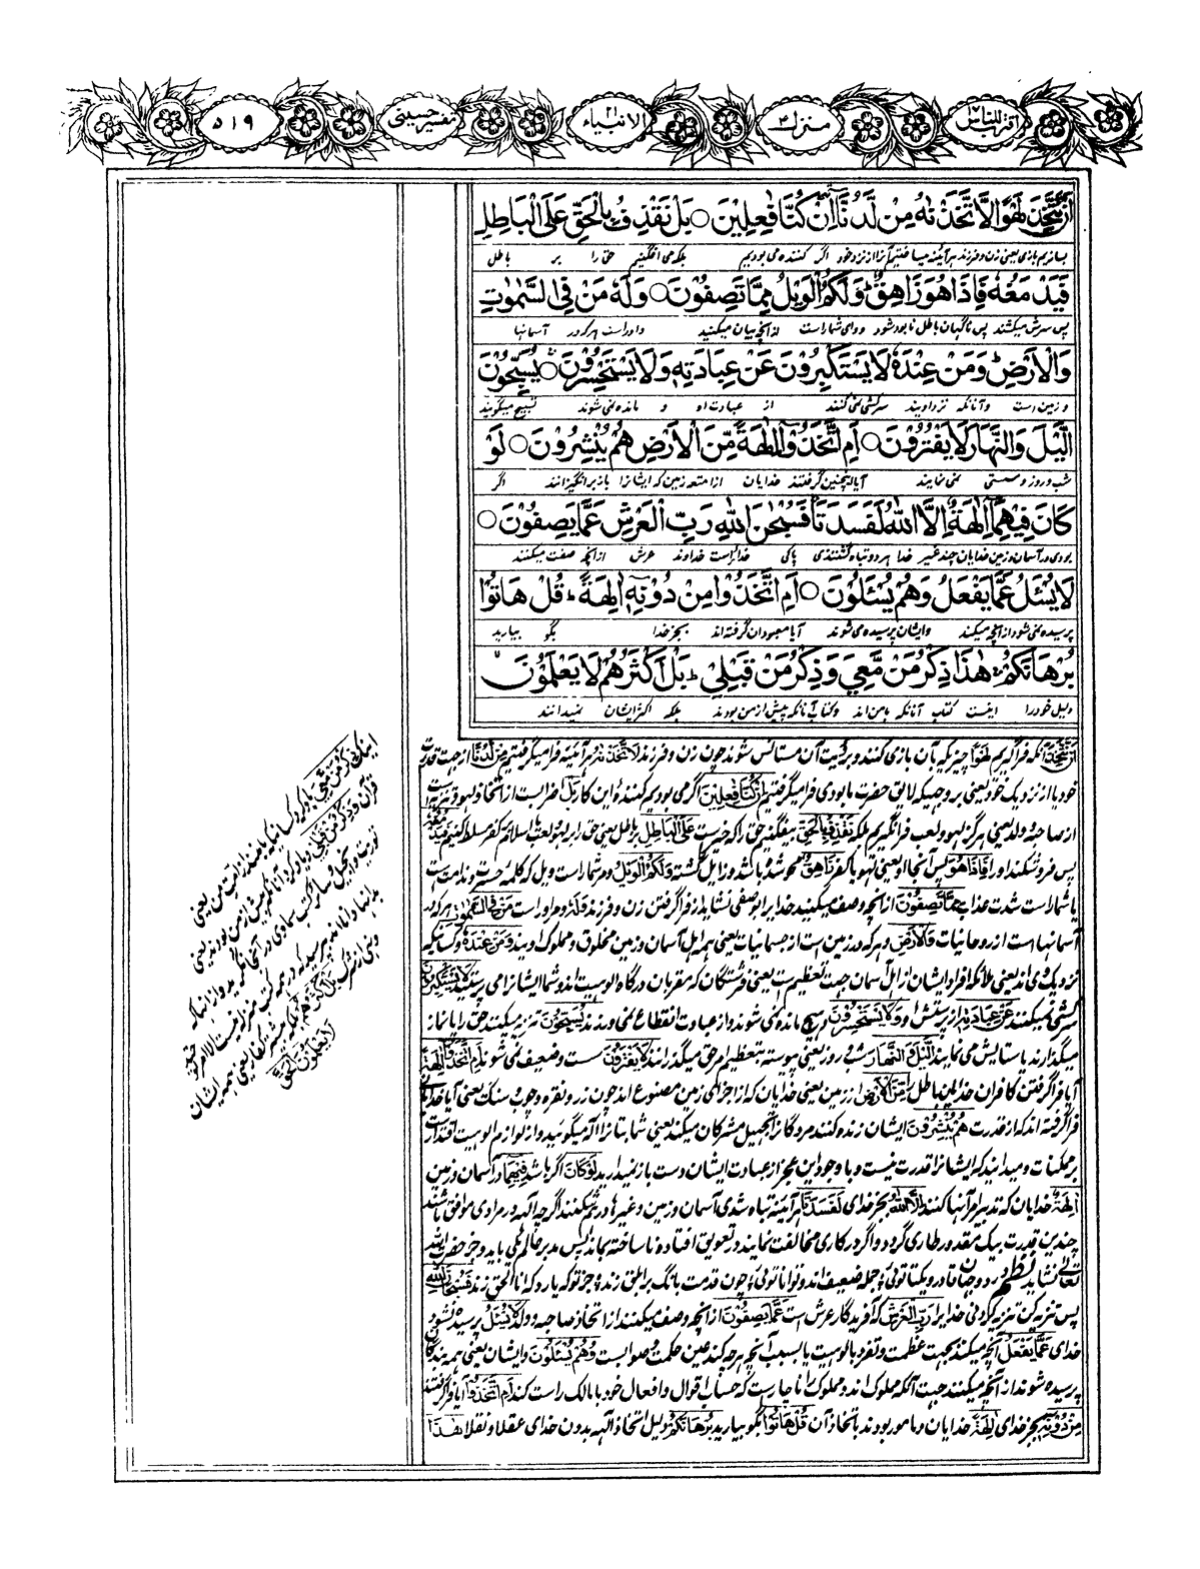 اقترب للناس ۱۷
منزل ۴
الانبیاء ۲۱
تفسیر حسینی
۵۱۹
اَنْ نَّتَّخِذَ لَهْوًا لَّاتَّخَذْنٰهُ مِنْ لَّدُنَّاۤ اِنْ كُنَّا فٰعِلِيْنَ ○ بَلْ نَقْذِفُ بِالْحَقِّ عَلَى الْبَاطِلِ
بسازیم بازی یعنی زن و فرزند هر آئینه میساختیم آنرا از نزد خود اگر کننده می بودیم بلکه می افگنیم حق را بر باطل
فَيَدْمَغُهٗ فَاِذَا هُوَ زَاهِقٌ ؕ وَلَكُمُ الْوَيْلُ مِمَّا تَصِفُوْنَ ○ وَلَهٗ مَنْ فِى السَّمٰوٰتِ
پس سرش میکشند پس ناگهان باطل نابود شود و وای شما راست از آنچه بیان میکنید و اوراست هر که در آسمانها
وَالْاَرْضِ ؕ وَمَنْ عِنْدَهٗ لَا يَسْتَكْبِرُوْنَ عَنْ عِبَادَتِهٖ وَلَا يَسْتَحْسِرُوْنَ ○ يُسَبِّحُوْنَ
و زمین است و آنانکه نزد اویند سرکشی نمی کنند از عبادت او و مانده نمی شوند تسبیح میگویند
الَّيْلَ وَالنَّهَارَ لَا يَفْتُرُوْنَ ○ اَمِ اتَّخَذُوْۤا اٰلِهَةً مِّنَ الْاَرْضِ هُمْ يُنْشِرُوْنَ ○ لَوْ
شب و روز و سستی نمی نمایند آیا اینچنین گرفتند خدایان از زمین که ایشان را باز برانگیزانند اگر
كَانَ فِيْهِمَاۤ اٰلِهَةٌ اِلَّا اللّٰهُ لَفَسَدَتَا ۚ فَسُبْحٰنَ اللّٰهِ رَبِّ الْعَرْشِ عَمَّا يَصِفُوْنَ ○
بودی در آسمان و زمین خدایان چند غیر خدا هر دو تباه گشتندی پاکی خدا راست خداوند عرش از آنچه صفت میکنند
لَا يُسْئَلُ عَمَّا يَفْعَلُ وَهُمْ يُسْئَلُوْنَ ○ اَمِ اتَّخَذُوْا مِنْ دُوْنِهٖۤ اٰلِهَةً ؕ قُلْ هَاتُوْا
پرسیده نمی شود از آنچه میکند و ایشان پرسیده می شوند آیا معبودان گرفته اند بجز خدا بگو بیارید
بُرْهَانَكُمْ ۚ هٰذَا ذِكْرُ مَنْ مَّعِىَ وَذِكْرُ مَنْ قَبْلِىْ ؕ بَلْ اَكْثَرُهُمْ لَا يَعْلَمُوْنَ
دلیل خود را اینست کتاب آنانکه با من اند و کتاب آنانکه پیش از من بودند بلکه اکثر ایشان نمیدانند
اَنْ نَّتَّخِذَ آنکه فراگیریم لَهْوًا چیزیکه بآن بازی کنند و برویت آن مستانس شوند چون زن و فرزند لَاتَّخَذْنٰهُ هر آئینه فرا میگرفتیم مِنْ لَّدُنَّا از جهت قدرت
خود یا از نزدیک خود یعنی بر وجهیکه لایق حضرت ما بودی فرا میگرفتیم اِنْ كُنَّا فٰعِلِيْنَ اگر می بودیم کنندهٔ این کار بَلْ اضراب است از اتخاذ لهو و تنزیه است
از صاحبه و ولد یعنی هرگز لهو و لعب فرا نگیریم بلکه نَقْذِفُ بِالْحَقِّ بیفگنیم حق را که خیر است عَلَى الْبَاطِلِ بر باطل یعنی حق را بر لهو و لعب یا اسلام را بر کفر مسلط کنیم فَيَدْمَغُهٗ
پس فرو شکند او را فَاِذَا هُوَ پس آنجا او یعنی لهو یا کفر زَاهِقٌ محو شده باشد و زایل گشته وَلَكُمُ الْوَيْلُ و مر شما راست ویل که کلمهٔ حسرت و ندامت است
یا شما راست شدت عذاب مِمَّا تَصِفُوْنَ از آنچه وصف میکنید خدایرا بوصفی نشاید از فراگرفتن زن و فرزند وَلَهٗ و مر اوراست مَنْ فِى السَّمٰوٰتِ هر که در
آسمانها است از روحانیات وَالْاَرْضِ و هر که در زمین است از جسمانیات یعنی همه اهل آسمان و زمین مخلوق و مملوک اویند وَمَنْ عِنْدَهٗ و کسانیکه
نزدیک وی اند یعنی ملائکه افراد ایشان از اهل آسمان جهت تعظیم است یعنی فرشتگان که مقربان درگاه الوهیت اند و شما ایشانرا می پرستید لَا يَسْتَكْبِرُوْنَ
سرکشی نمیکنند عَنْ عِبَادَتِهٖ از پرستش او وَلَا يَسْتَحْسِرُوْنَ و هیچ مانده نمی شوند و از عبادت انقطاع نمی ورزند يُسَبِّحُوْنَ تنزیه میکنند حق را یا نماز
میگذارند یا ستایش می نمایند الَّيْلَ وَالنَّهَارَ شب و روز یعنی پیوسته بتعظیم امر حق میگذرانند لَا يَفْتُرُوْنَ سست و ضعیف نمی شوند اَمِ اتَّخَذُوْۤا اٰلِهَةً
آیا فرا گرفتن کافران خدایان باطل را مِنَ الْاَرْضِ از زمین یعنی خدایان که از اجزای زمین مصنوع اند چون زر و نقره و چوب و سنگ یعنی آیا خدایان
فرا گرفته اند که از قدرت هُمْ يُنْشِرُوْنَ ایشان زنده کنند مردگان را تجهیل مشرکان میکند یعنی شما بتان را اله میگوئید و از لوازم الوهیت اقتدار است
بر ممکنات و میدانید که ایشانرا قدرت نیست و با وجود این عجز از عبادت ایشان دست باز نمیدارید لَوْ كَانَ اگر باشد فِيْهِمَا در آسمان و زمین
اٰلِهَةٌ خدایان که تدبیر امر آنها کنند اِلَّا اللّٰهُ بجز خدای لَفَسَدَتَا هر آئینه تباه شدی آسمان و زمین و غیرها در هم شکنند اگر چه الهه در مرادی موافق باشند
چندین قدرت بیک مقدور طاری گردد و اگر در کاری مخالفت نمایند در تعویق افتاده ناساخته بماند پس مدبر عالم یکی باید و جز حضرت الله
تعالی نشاید نظم در دو جهان قادر و یکتا توئی ؛ جمله ضعیف اند و توانا توئی ؛ چون قدمت بانگ بر ابلق زند ؛ جز تو که یارد که انا الحق زند فَسُبْحٰنَ اللّٰهِ
پس تنزیه کن تنزیه کردنی خدایرا رَبِّ الْعَرْشِ که آفریدگار عرش است عَمَّا يَصِفُوْنَ از آنچه وصف میکنند از اتخاذ صاحبه و ولد لَا يُسْئَلُ پرسیده نشود
خدای عَمَّا يَفْعَلُ آنچه میکند بجهت عظمت و تفرد بالوهیت یا بسبب آنچه هر چه کند عین حکمت و صوابست وَهُمْ يُسْئَلُوْنَ و ایشان یعنی همه بندگان
پرسیده شوند از آنچه میکنند جهت آنکه مملوک اند و مملوک را ناچار است که حساب اقوال و افعال خود با مالک راست کند اَمِ اتَّخَذُوْا آیا فرا گرفتند
مِنْ دُوْنِهٖ بجز خدای اٰلِهَةً خدایان و مامور بودند باتخاذ آن قُلْ هَاتُوْا بگو بیارید بُرْهَانَكُمْ دلیل اتخاذ آلهه بدون خدای عقلا و نقلا هٰذَا
اینک ذِكْرُ مَنْ مَّعِىَ یاد کرد کسانیکه با منند از امت من یعنی
قرآن وَذِكْرُ مَنْ قَبْلِىْ و یاد کرد آنانکه پیش از من بودند یعنی
توریت و انجیل و سائر کتب سماوی در آنجا نگرید و از آنها که
بدانها دانا اند بپرسید که در همه کتب منزله نیست الا امر بتوحید
و نهی از شرک بَلْ اَكْثَرُهُمْ بلکه بیشتر کفار یعنی همه ایشان
لَا يَعْلَمُوْنَ الْحَقَّ